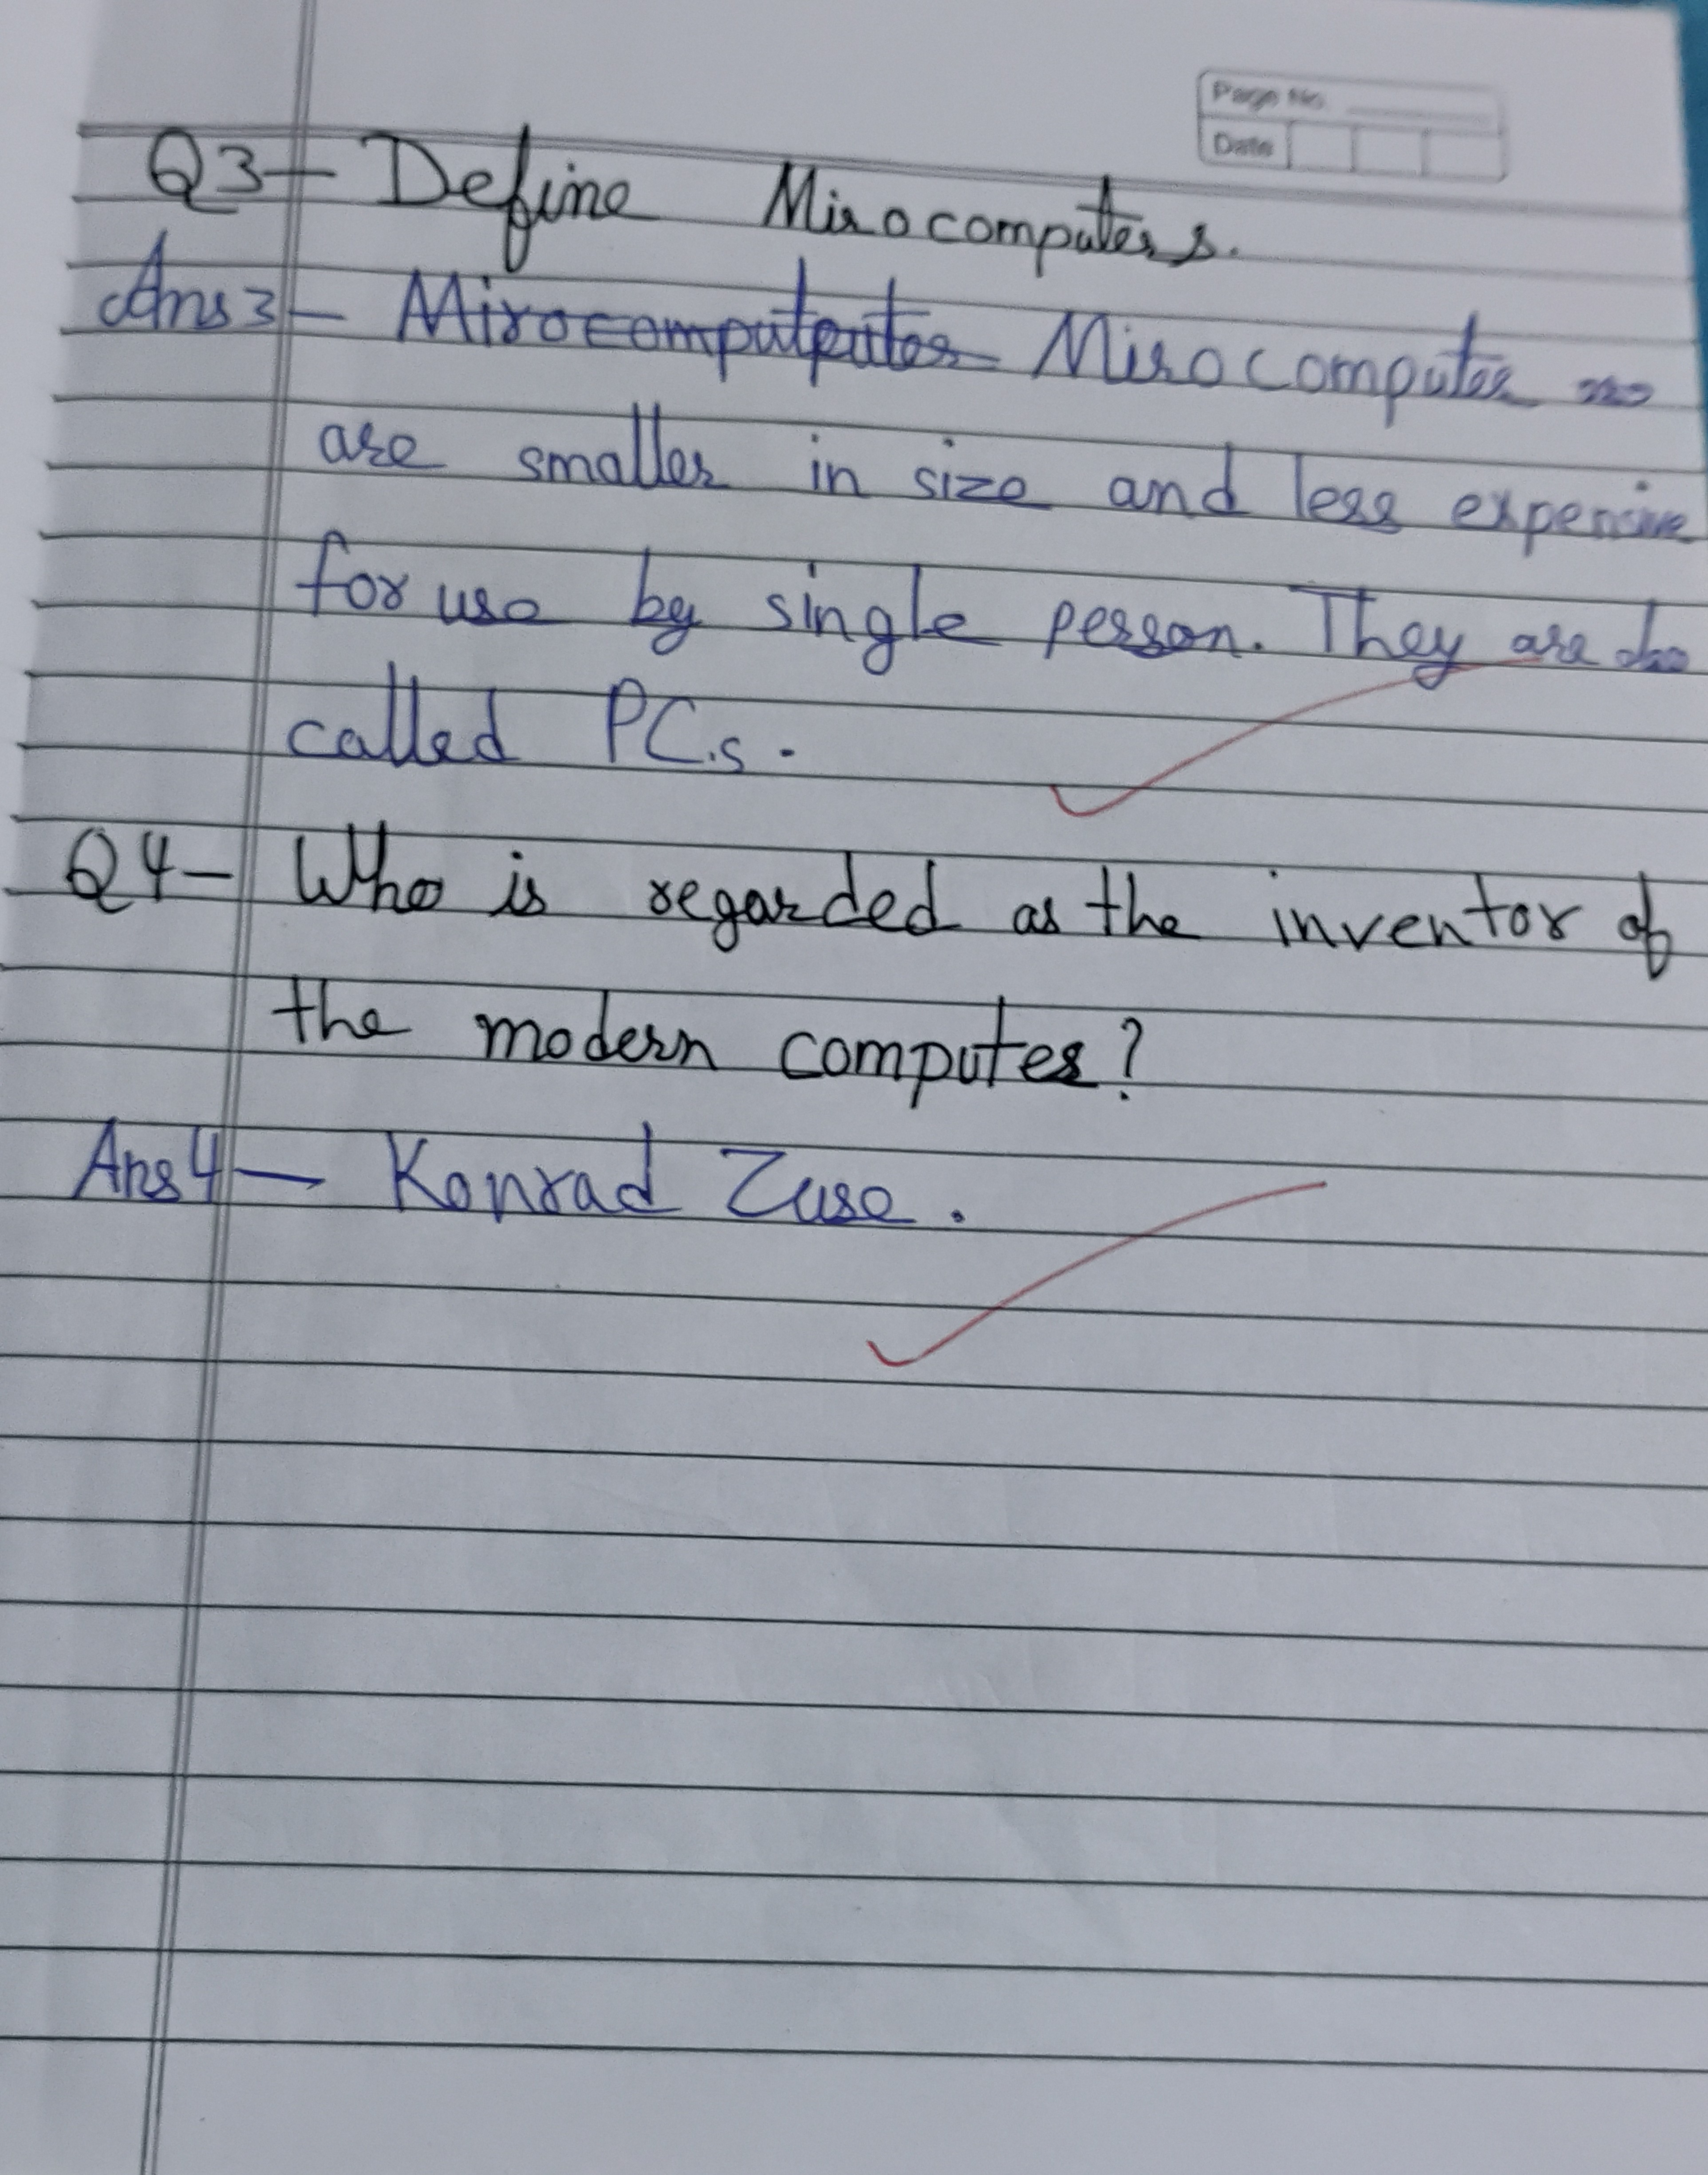 Page No.
Date
Q3- Define Mirocomputers.
Ans3- Mirocomputputer Mirocomputer
are smaller in size and less expensive
for use by single person. They are also
called PC.s.
Q4- Who is regarded as the inventor of
the modern computer?
Ans4- Konrad Zuse.